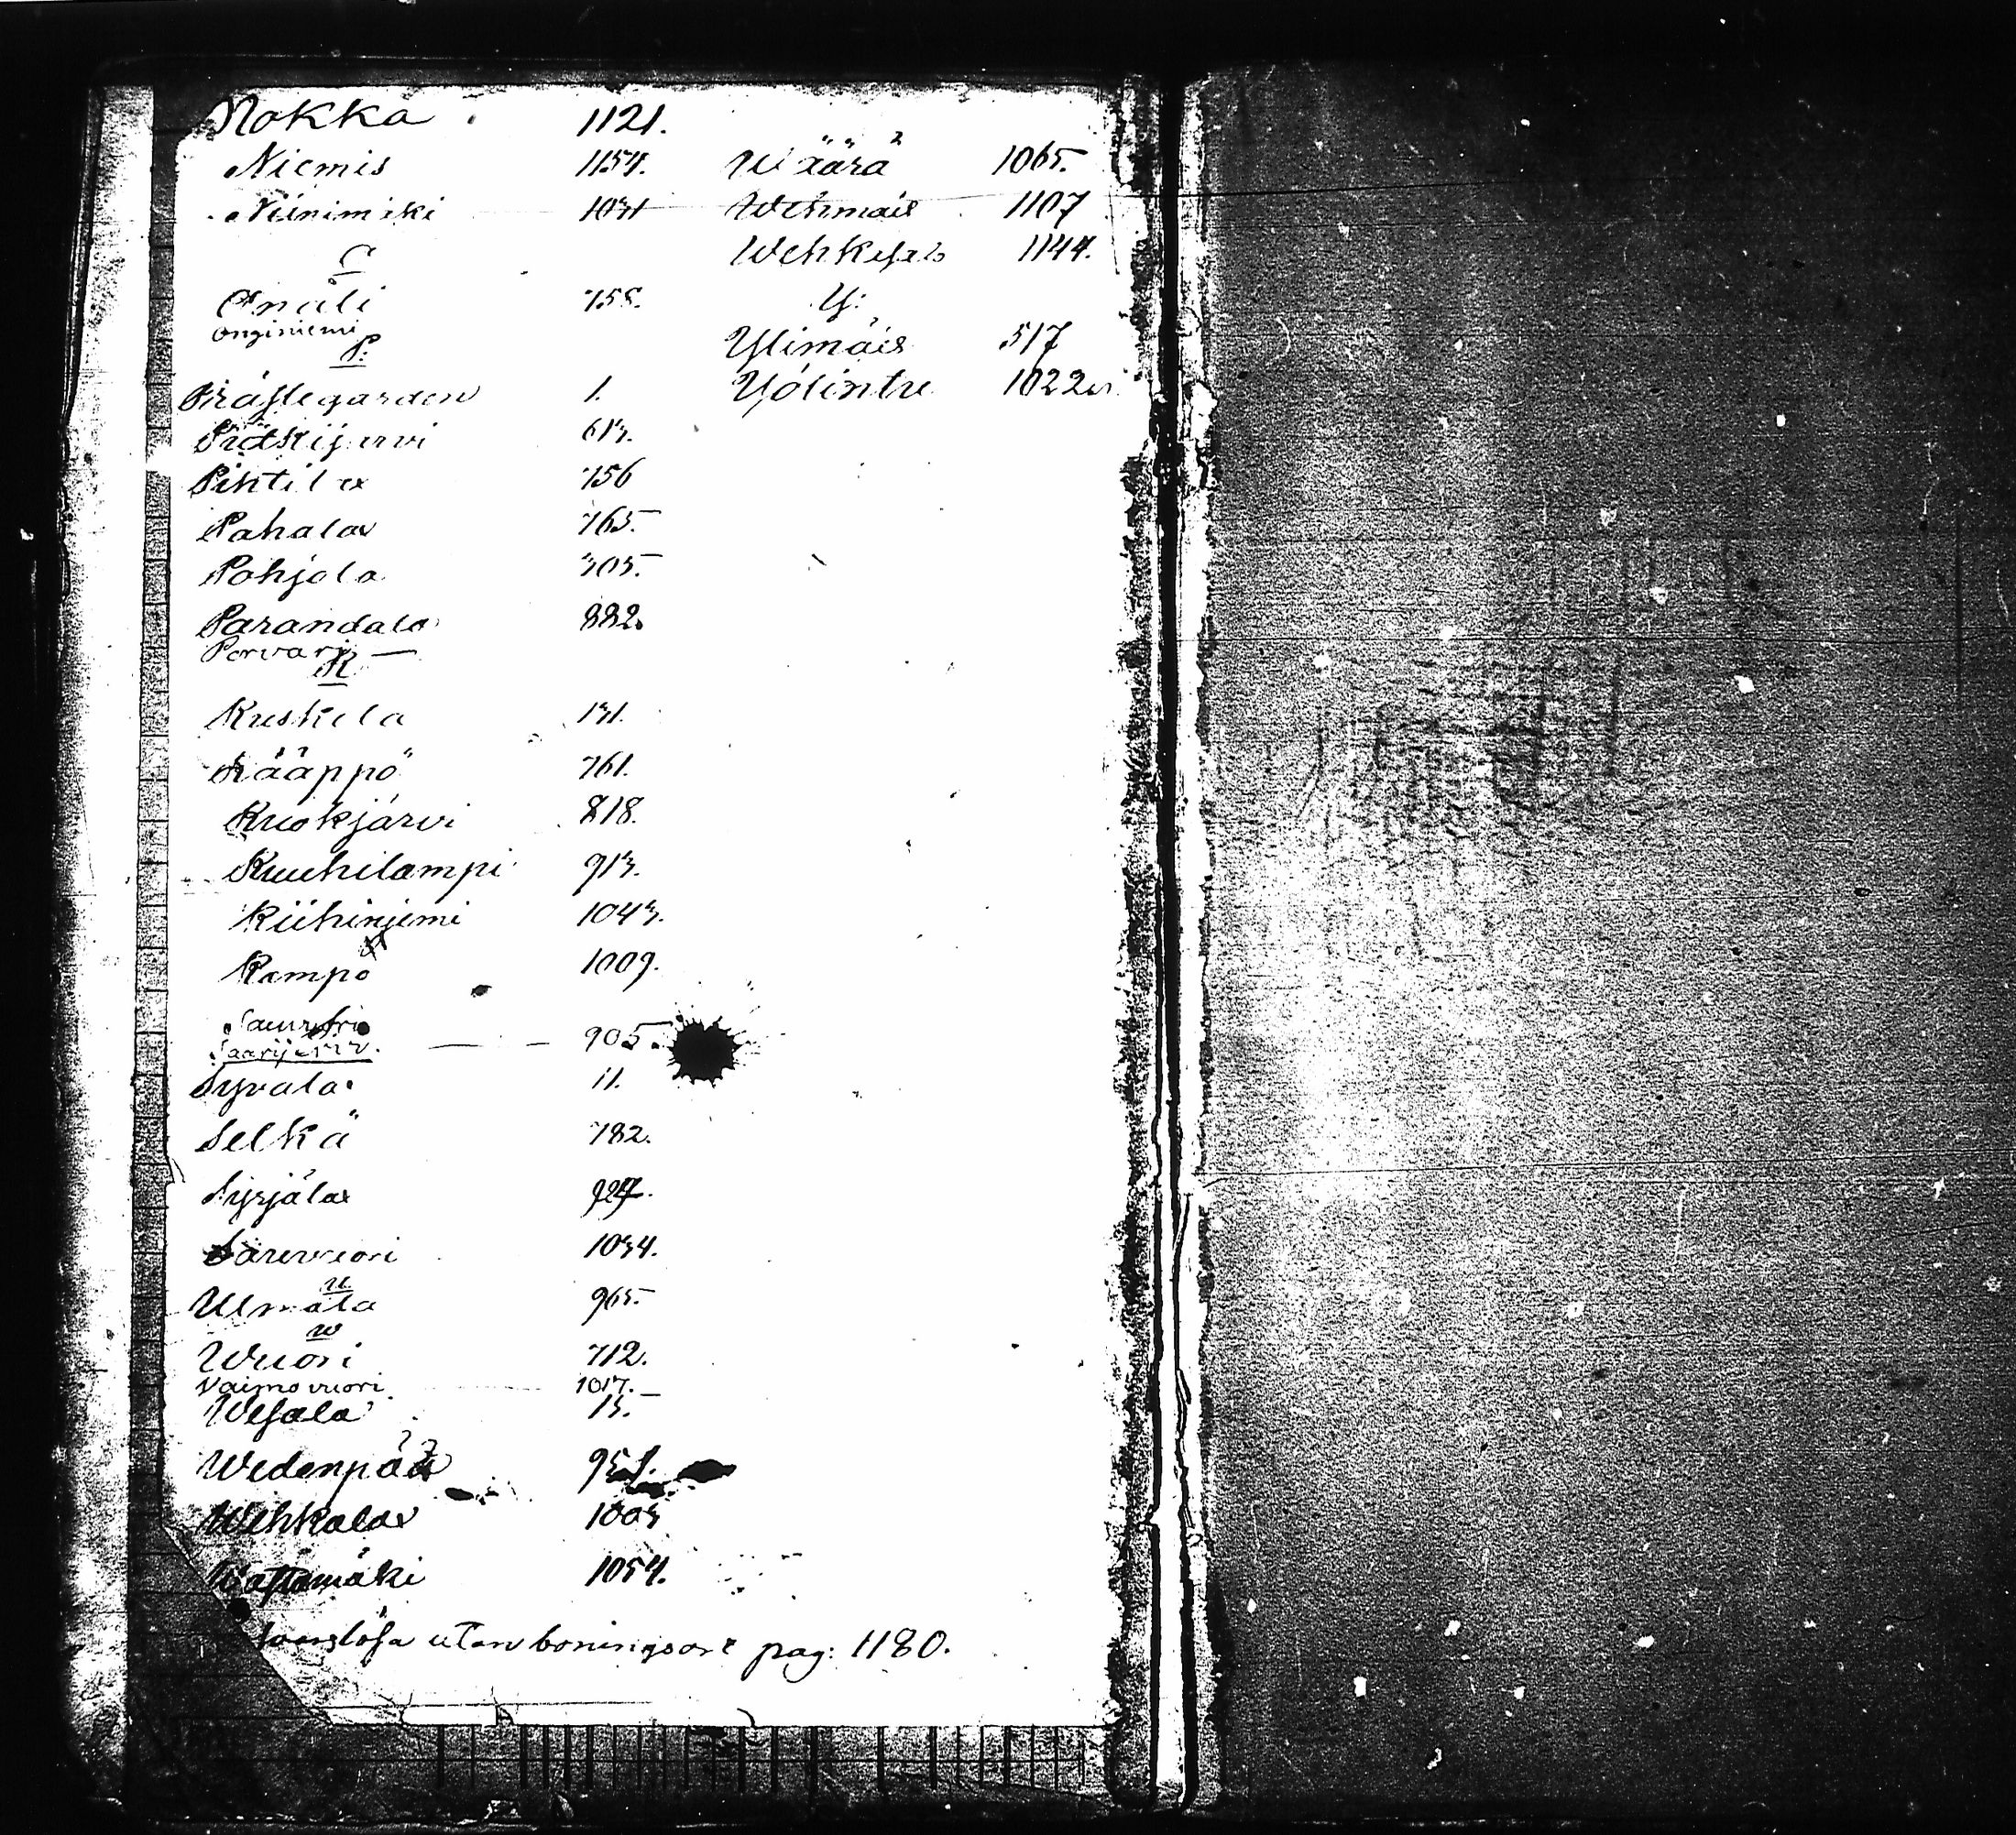 Nokka 1121.
Niemis 1154.
Niinimäki 1031
O
Onali 755.
Onginiemi
P:
Prästegarden 1.
Pätkijervi 613.
Pihtila 756
Pahala 765.
Pohjola 305.
Parandala 882.
Porvari —
R
Ruskela 131.
Rääppö 761.
Ruokjärvi 818.
Ruuhilampi 913.
Riihiniemi 1043.
Rampo 1009.
Saarijervi — 905.
Syvala 11.
Selkä 782.
Syrjäla
Sarevuori 1034.
U
Urmala 965.
W
Wuori 712.
Vaimovuori 1017.
Wesala 15.
Wedenpää 951.
Wehkala 1003
Wastamäki 1054.
utan boningsort pag: 1180.
Wäärä 1065.
Wehmais 1107
Wehkasalo 1144.
Y:
Ylimäis 517
Yölintu 1022